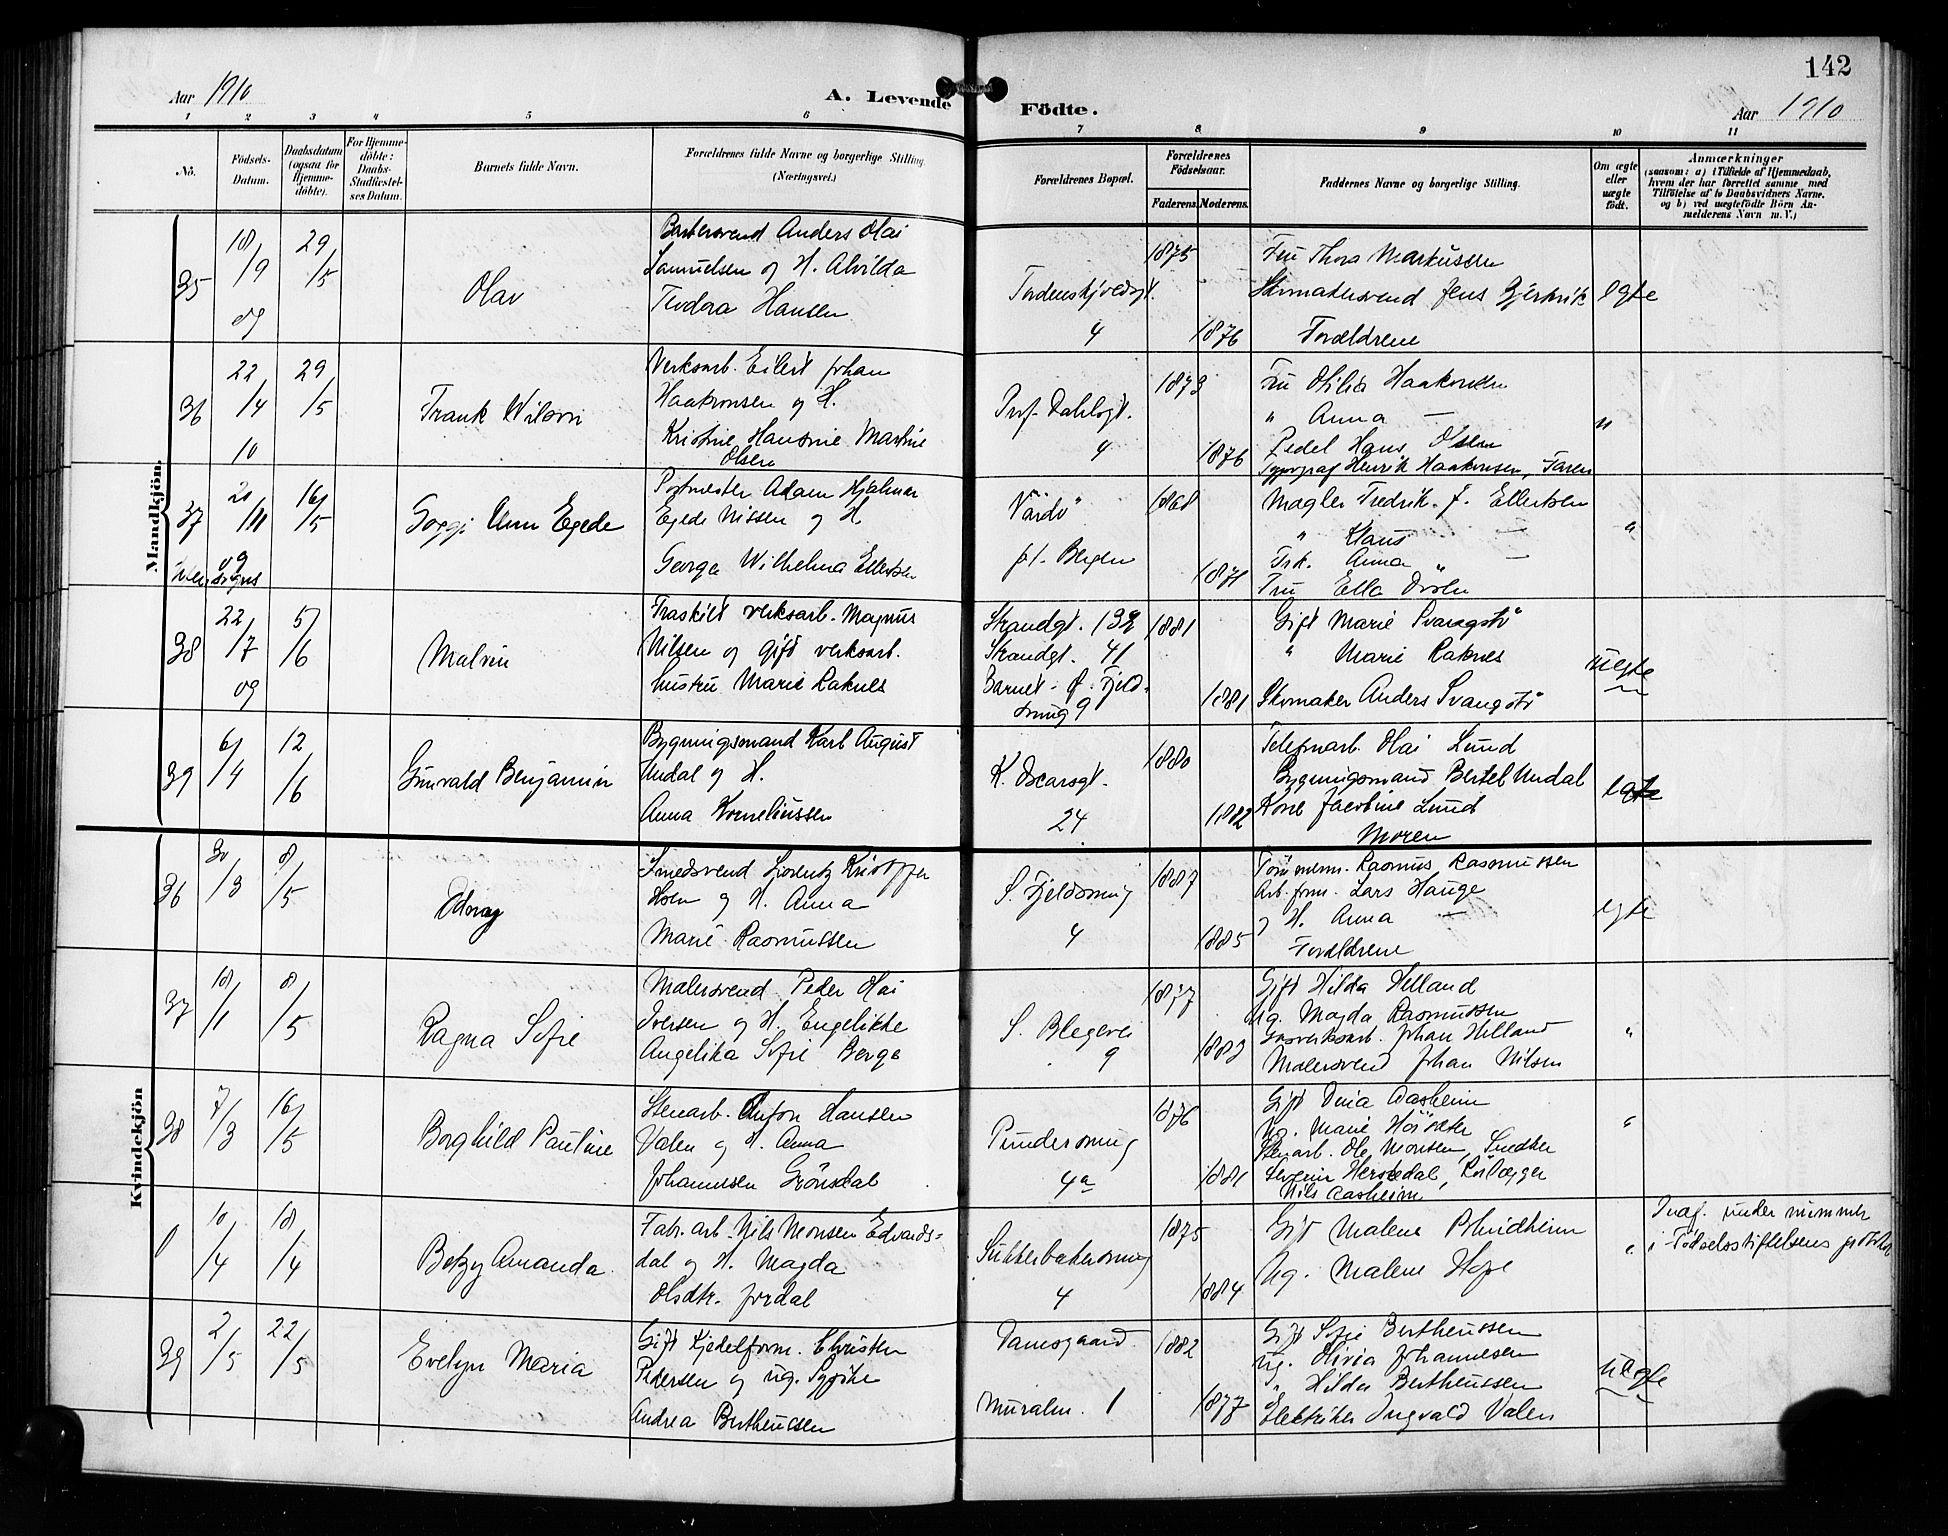 142
Aar 1910
A. Levende Födte.
Aar 1910
1 2 3 4 5 6 7 8 9 10 11
No.
Födsels-Datum.
Daabsdatum (ogsaa for Hjemme-döbte).
For Hjemme-döbte: Daabs-Stadfæstel-ses Datum.
Barnets fulde Navn.
Forældrenes fulde Navne og borgerlige Stilling. (Næringsvei.)
Forældrenes Bopæl.
Forældrenes Födselsaar.
Faderens. Moderens.
Faddernes Navne og borgerlige Stilling.
Om ægte eller uægte födt.
Anmærkninger
(saasom: a) i Tilfælde af Hjemmedaab, hvem der har forrettet samme med Tilföielse af to Daabsvidners Navne. og b) ved uægtefödte Börn An-melderens Navn m. V.)
Mandkjön.
35
18/9 09
29/5
Olav
Barbersvend Anders Olai
Samuelsen og H. Alvilda
Teodora Hansen
Tordenskjoldsgt.
4
1875
1876
Fru Thora Markussen
Skomakersvend Jens
Forældrene
egte
36
22/4 10
29/5
Frank Wilson
Verksarb. Eilert Johan
Haakonsen og H.
Kristine Hansine Martine
Olsen
Prof. Dahlsgt.
4
1873
1876
Fru Otilia Haakonsen
" Anna —
Pedel Hans Olsen
Typograf Henrik Haakonsen, Faren
"
37
20/11 09
16/5
Egede
Postmester Adam Hjalmar
Egede Nissen og H.
Georga Wilhelma Ellertsen
Vardö
p.t. Bergen
1868
1871
Mægler Fredrik. J. Ellertsen
" Klaus —
Frk. Anna —
Fru Ella
"
38
22/7 09
5/6
Malvin
Fraskilt verksarb. Magnus
Nilsen og gift verksarb.
hustru Marie Raknes
Strandgt. 132
Strandgt. 41
Barnet. Ø. Fjeld-
smug 9
1881
1881
Gift Marie
" Marie Raknes
Skomaker Anders
uegte
39
6/4
12/6
Gunvald Benjamin
Bygningsmand Karl August
Undal og H.
Anna Korneliussen
K. Oscarsgt.
24
1880
1882
Telefonarb. Olai Lund
Bygningsmand Bertel Undal
Kone Jacobine Lund
Moren
egte
Kvindekjön
36
30/3
8/5
Odnay
Smedsvend Lorentz Kristoffer
Hoen og H. Anna
Marie Rasmussen
S. Fjeldsmug
4
1887
1885
Tömmerm. Rasmus Rasmussen
Arb. form. Lars Hauge
og H. Anna —
Forældrene
egte
37
18/1
8/5
Ragna Sofie
Malersvend Peder Olai
Iversen og H. Engelikke
Angelika Sofie Berge
S. Blegevei
9
1877
1883
Gift Hilda Helland
Ug. Magda Rasmussen
Gasverksarb. Johan Helland
Malersvend Johan Nilsen
"
38
7/3
16/5
Borghild Pauline
Stenarb. Anton Hansen
Valen og H. Anna
Johannesen Grönsdal
Pundersmug
4a
1876
1881
Gift Dina Aasheim
Ug. Marie
Stenarb. Ole Monsen, Snedker
Severin Herredal,
Nils Aasheim
"
0
10/4
18/4
Betzy Amanda
Fabr. arb. Nils Monsen Edvards-
dal og H. Magda
Olsdtr. Jordal
Sukkerbakersmug
4
1875
1884
Gift Malene
Ug. Malene Hope
"
Indf. under nummer
i Födselsstiftelsens protokol
39
2/5
22/5
Evelyn Maria
Gift Kjedelform. Christen
Pedersen og ug. Syerske
Andrea Bertheussen
Damsgaard
Muralm. 1
1882
1877
Gift Sofie Bertheussen
Ug. Olivia Johannesen
" Hilda Bertheussen
Elektriker Ingvald Valen
uegte